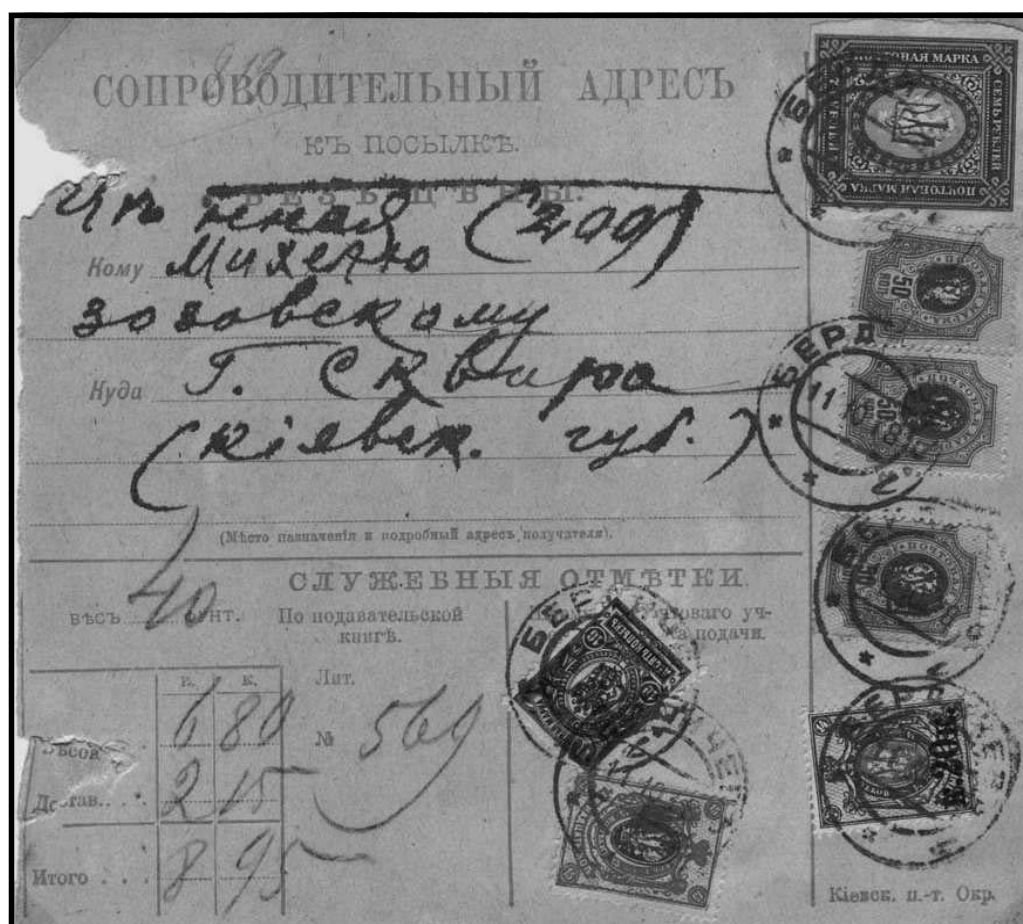 СОПРОВОДИТЕЛЬНЫЙ АДРЕСЪ
КЪ ПОСЫЛКѢ.
БЕЗЪ ЦѢНЫ.
(200)
Кому Михелю
зозовскому
Куда Г. Сквира
(кіевск. губ.)
(Мѣсто назначенія и подробный адресъ получателя).
СЛУЖЕБНЫЯ ОТМѢТКИ.
ВѢСЪ 40 ФУНТ.
По подавательской
книгѣ.
почтоваго уч-
подачи.
Лит.
№ 569
Р. К.
6 80
Достав. . . . 2 15
Итого . . . 8 95
ПОЧТОВАЯ МАРКА
СЕМЬ РУБЛЕЙ
ПОЧТОВАЯ МАРКА
50
50
БЕРД
11
2
20к.
Кіевск. п.-т. Окр.